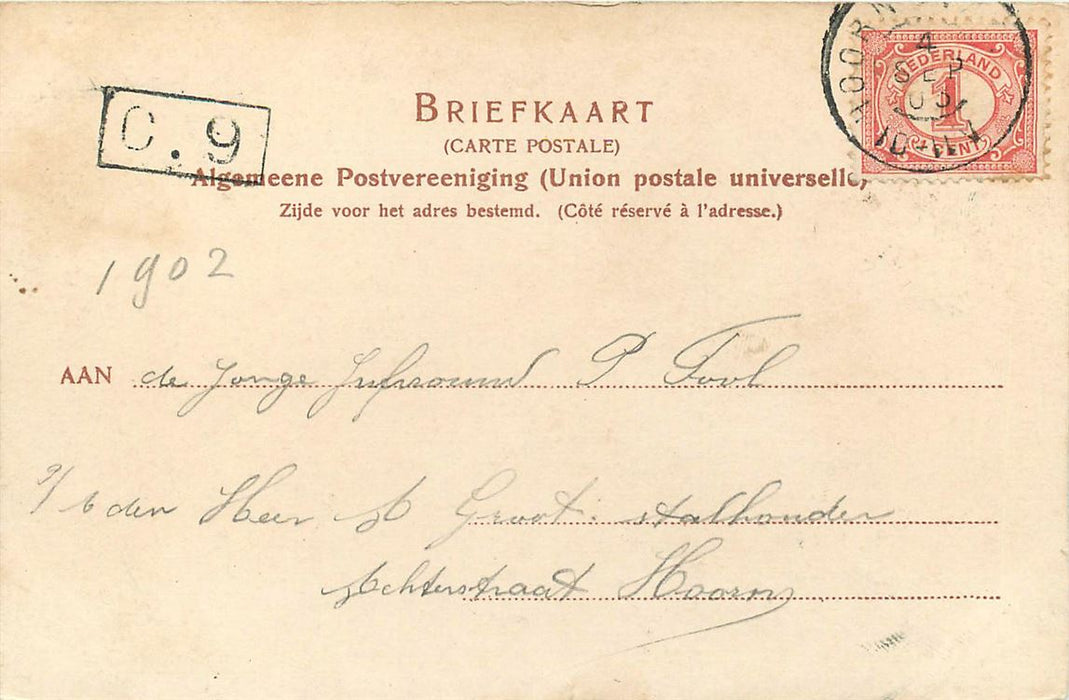 HOORN
4
SEP
NEDERLAND
1
CENT
C. 9
BRIEFKAART
(CARTE POSTALE)
Algemeene Postvereeniging (Union postale universelle)
Zijde voor het adres bestemd. (Côté réservé à l'adresse.)
1902
AAN de Jonge Jufvrouw P Tool
p/b den Heer K Groot. stalhouder
Achterstraat Hoorn